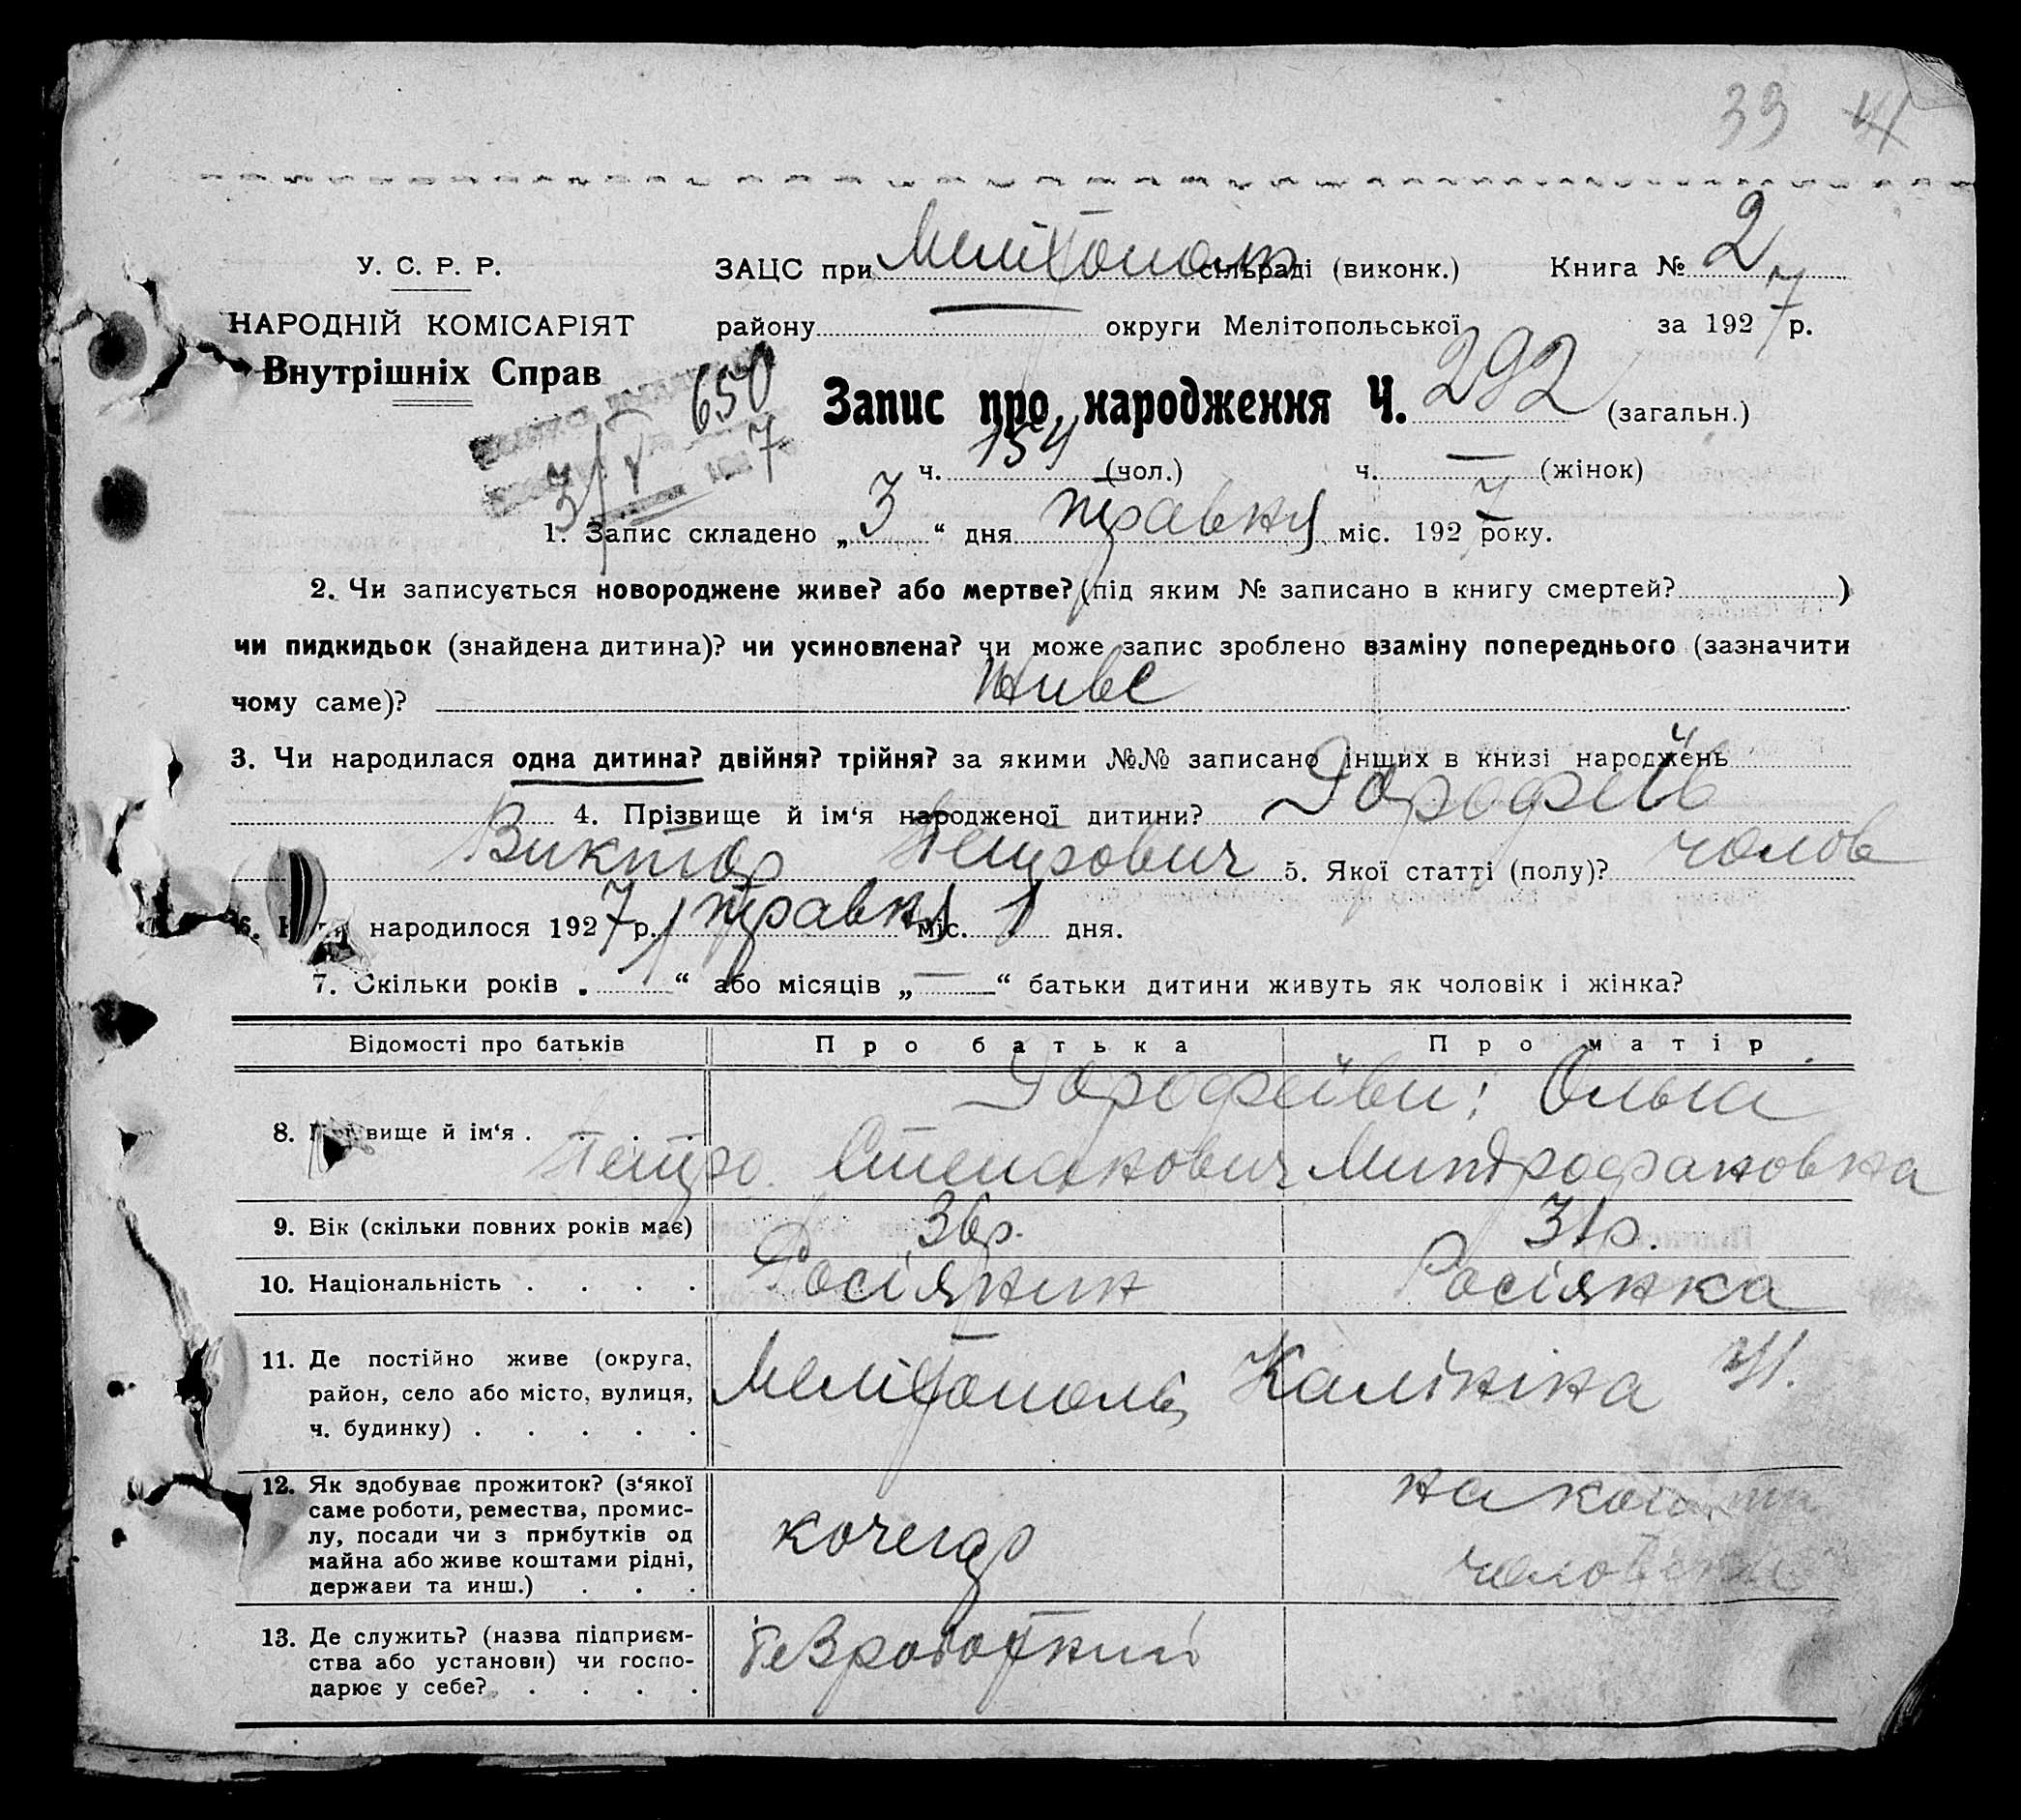 39 41
У. С. Р. Р.
ЗАЦС при Мелітополь сільраді (виконк.) Книга № 2
НАРОДНІЙ КОМІСАРІЯТ
району округи Мелітопольської за 1927 р.
Внутрішніх Справ
650
Запис про народження Ч. 292 (загальн.)
3/V 1927
ч. 154 (чол.) ч. — (жінок)
1. Запис складено „3“ дня травня міс. 1927 року.
2. Чи записується новороджене живе? або мертве? (під яким № записано в книгу смертей? )
чи пидкидьок (знайдена дитина)? чи усиновлена? чи може запис зроблено взаміну попереднього (зазначити
чому саме)? живе
3. Чи народилася одна дитина? двійня? трійня? за якими №№ записано інших в книзі народжень
4. Прізвище й ім‘я народженої дитини? Дорофеїв
Виктор Петрович 5. Якої статті (полу)? чолов
6. народилося 1927 р. травня міс. 1 дня.
7. Скільки років „ “ або місяців „—“ батьки дитини живуть як чоловік і жінка?
Відомості про батьків Про батька Про матір
Дорофеїви: Ольга
8. Прізвище й ім‘я . Петро Степанович Митрофановна
9. Вік (скільки повних років має) 36р. 31р.
10. Національність . . . . Росіянин Росіянка
11. Де постійно живе (округа,
район, село або місто, вулиця, Мелітополь, Калініна 41.
ч. будинку) . . . . .
12. Як здобуває прожиток? (з‘якої на кошти
саме роботи, ремества, промис-
лу, посади чи з прибутків од кочегар
майна або живе коштами рідні, чоловіка
держави та инш.) . . .
13. Де служить? (назва підприєм- безроботний
ства або установи) чи госпо-
дарює у себе? . . . .